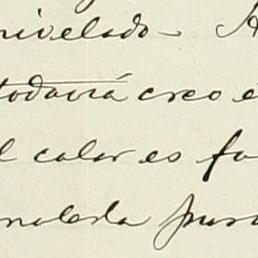 nivelado - A
todavía creo e
l calor es fu
molesta pura